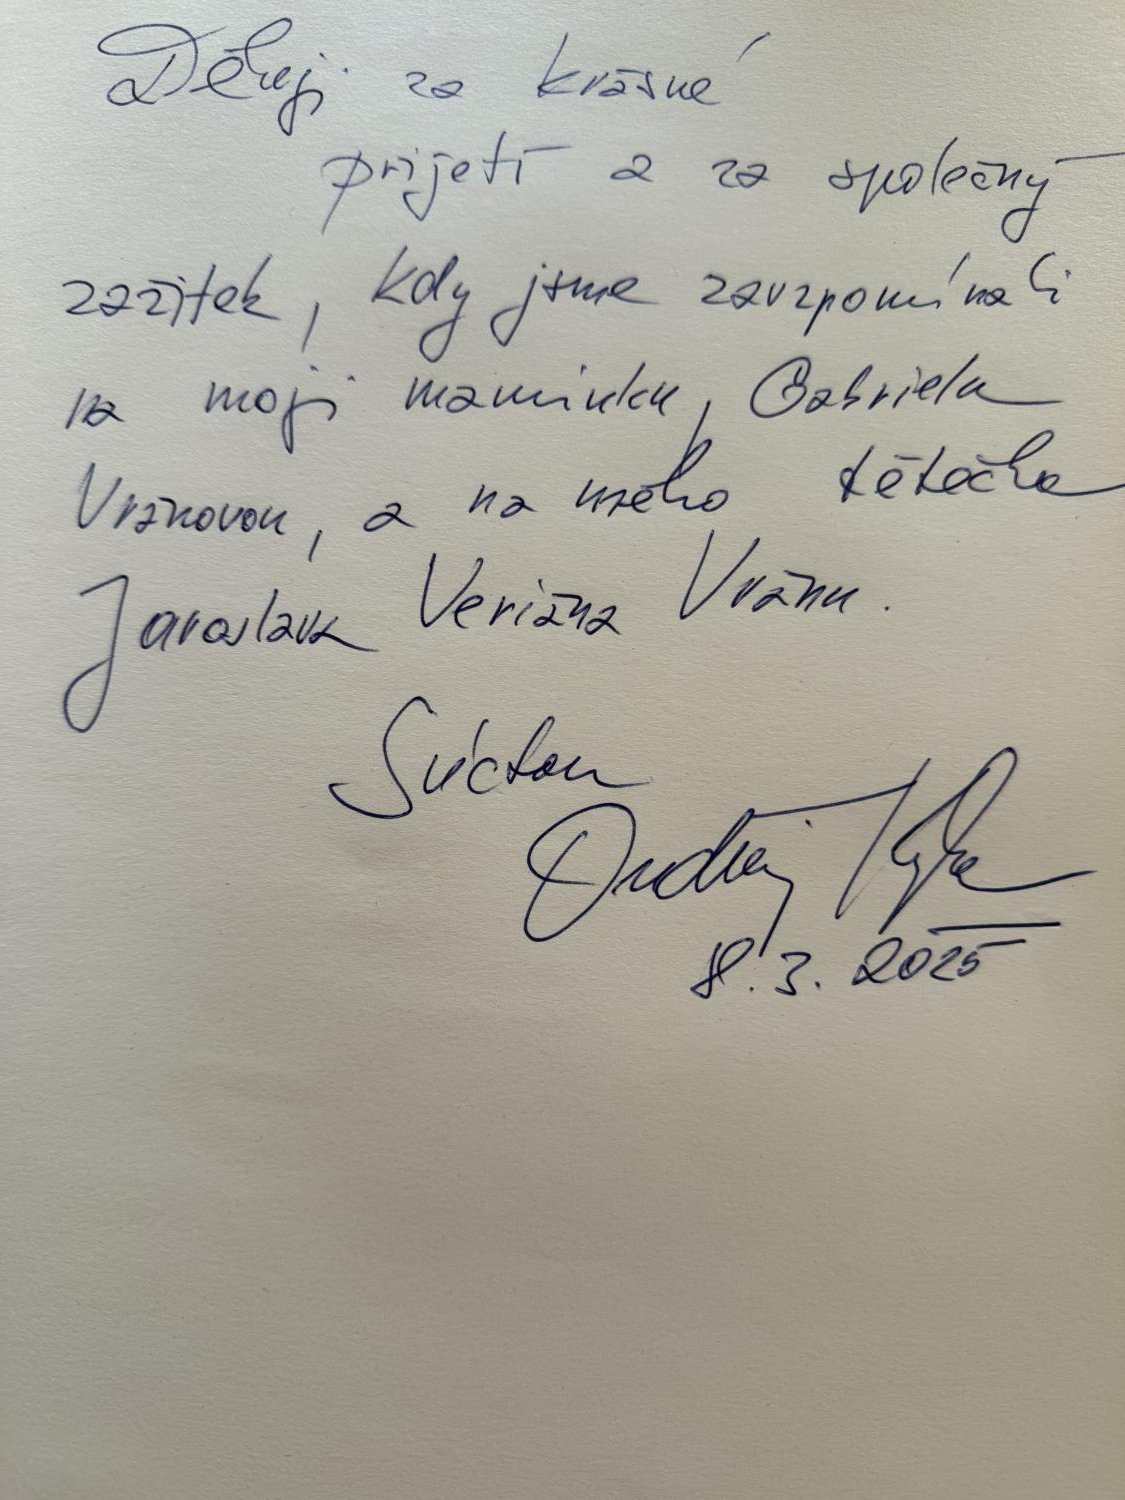 Děkuji za krásné
přijetí a za společný
zážitek, kdy jsme zavzpomínali
na moji maminku, Gabrielu
Vránovou, a na mého tětěčka
Jaroslava Veriána Vránu.
S úctou
Ondřej
8.3.2025